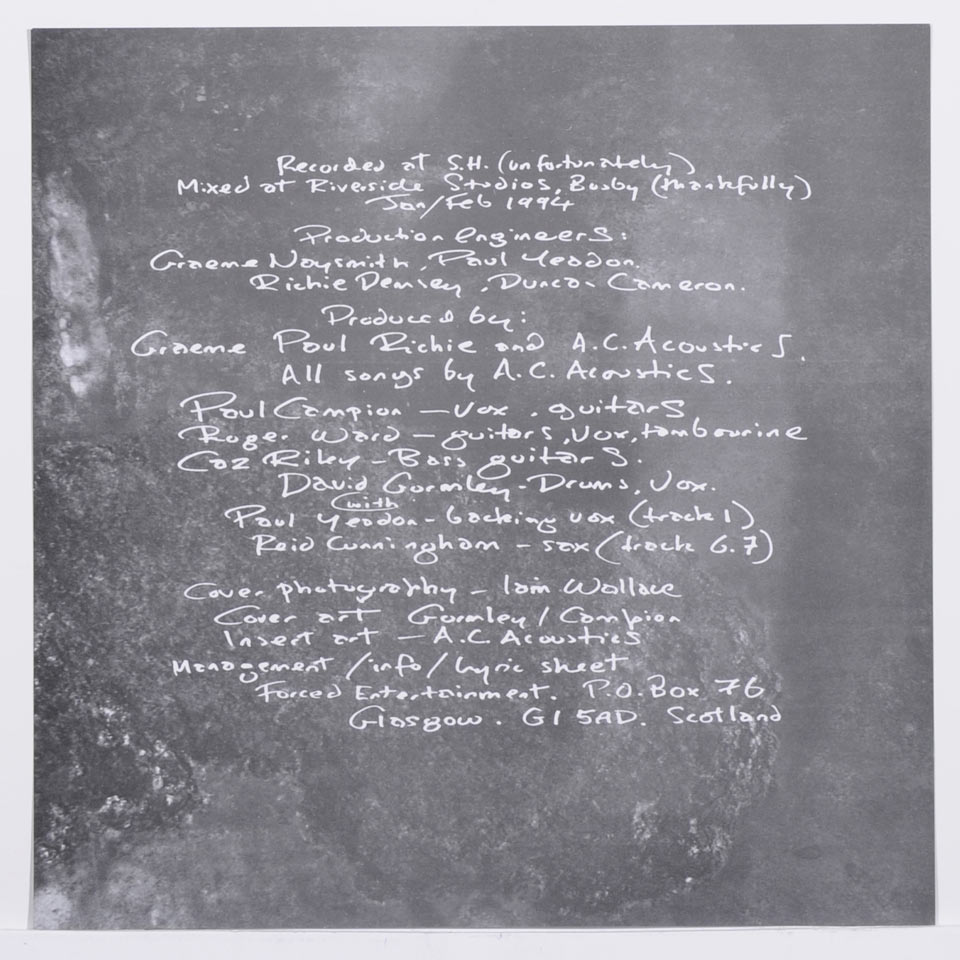 Recorded at S.H. (unfortunately)
Mixed at Riverside Studios, Busby (thankfully)
Jan/Feb 1994
Production engineers:
Graeme Naysmith, Paul Yeadon.
Richie Demsey, Duncan Cameron.
Produced by:
Graeme Paul Richie and A.C. Acoustics.
All songs by A.C. Acoustics.
Paul Campion - vox, guitars
Roger Ward - guitars, vox, tambourine
Caz Riley - Bass guitars.
David Gormley - Drums, vox.
with
Paul Yeadon - backing vox (track 1)
Raid Cunningham - sax (track 6.7)
Cover photography - Iain Wallace
Cover art Gormley / Campion
Insert art - A.C Acoustics
Management / info / lyric sheet
Forced Entertainment. P.O. Box 76
Glasgow. G1 5AD. Scotland